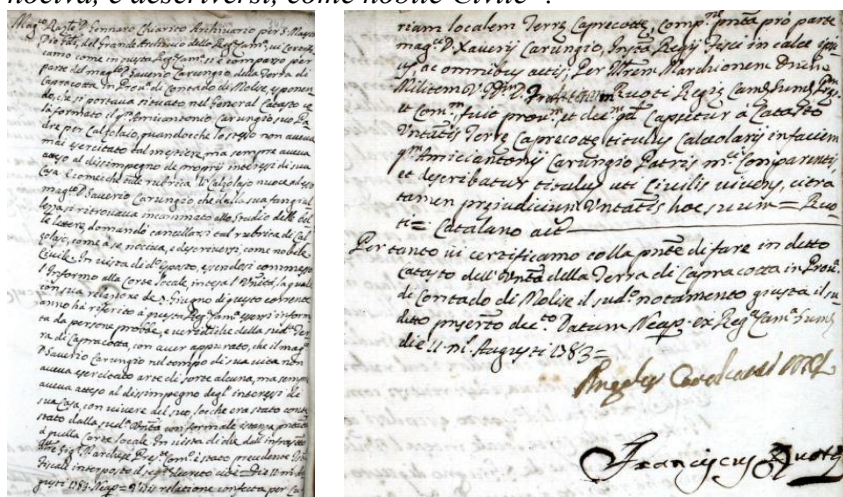 nociva, e descriversi, come nobile Civile".
D. Gennaro Chiarito Archivario per S. Maestà
del Grande Archivio della Reg. Cam.
camo come in questa Reg. Cam. si è comparso per
parte del mag. D. Saverio Carungio della Terra di
Capracotta in Prov. di Contado di Molise, esponen
do, che si portava situato nel General Catasto co
là formato il q.m Amicantonio Carungio, suo Pa
dre per Calzolaio, quandoche lo stesso non aveva
mai esercitato tal mestiere, ma sempre aveva
atteso al disimpegno de proprij interessi di sua
Casa. E come che tale rubrica di Calzolajo nuoce ad esso
mag. D. Saverio Carungio che dalla sua fanciul
lezza si ritrovava incaminato allo studio delle bel
le lettere, domandò cancellarsi tal rubrica di Cal
zolajo, come a se nociva, e descriversi, come nobile
Civile. In vista di d.o esposto, essendosi commesso
l'Informo alla Corte locale, intesa l'Unità, la quale
con sua relazione de 2. Giugno di questo corrente
anno hà riferito à questa Reg. Cam. essersi inform
ta da persone probbe, e veritiere della sud. Ter
ra di Capracotta, con aver appurato, che il mag.
D. Saverio Carungio nel tempo di sua vita non
aveva esercitato arte di sorte alcuna, ma sempre
aveva atteso al disimpegno degl'interessi de
sua Casa, con vivere del suo, loche era stato conte
stato dalla sud. Unità con formale istanza
à quella Corte locale. In vista di che dall'infrascritto
Sig. Marchese Pres. Com. è stato precedente
Fiscale interposto il seg. decreto = Die 10 m. Au
gusti 1783. Neap. = Visa relatione confecta per Cu
riam localem Terrę Capracottę, comp. pnta pro parte
mag. D. Xaverij Carungio, Insta Regij Fisci in calce ipi
us, ac omnibus actis; Per Ill.rem Marchionem Dnum
Militem V. I. D. D. Franciscum Ruoti Regię Camę Summę
et Com. fuit provm. et decm. qd Cassetur à Catasto
Untatis Terrę Capracottę titulus Calceolarij in faciem
qm Amicantonij Carungio Patris m.ci Comparentis,
et describatur titulus uti Civilis vivens, citra
tamen prejudicium Untatis hoc suum = Ruo
ti = Catalano act.
Per tanto vi certificamo colla pnte di fare in detto
Catasto dell'Untà della Terra di Capracotta in Prov.
di Contado di Molise il sud. notamento giusta il su
detto pnserto dec.to Datum Neap. ex Reg. Cam. Sum.
die 11 m. Augusti 1783 =
Angelus Cavalcanti
Franciscus Ruoti